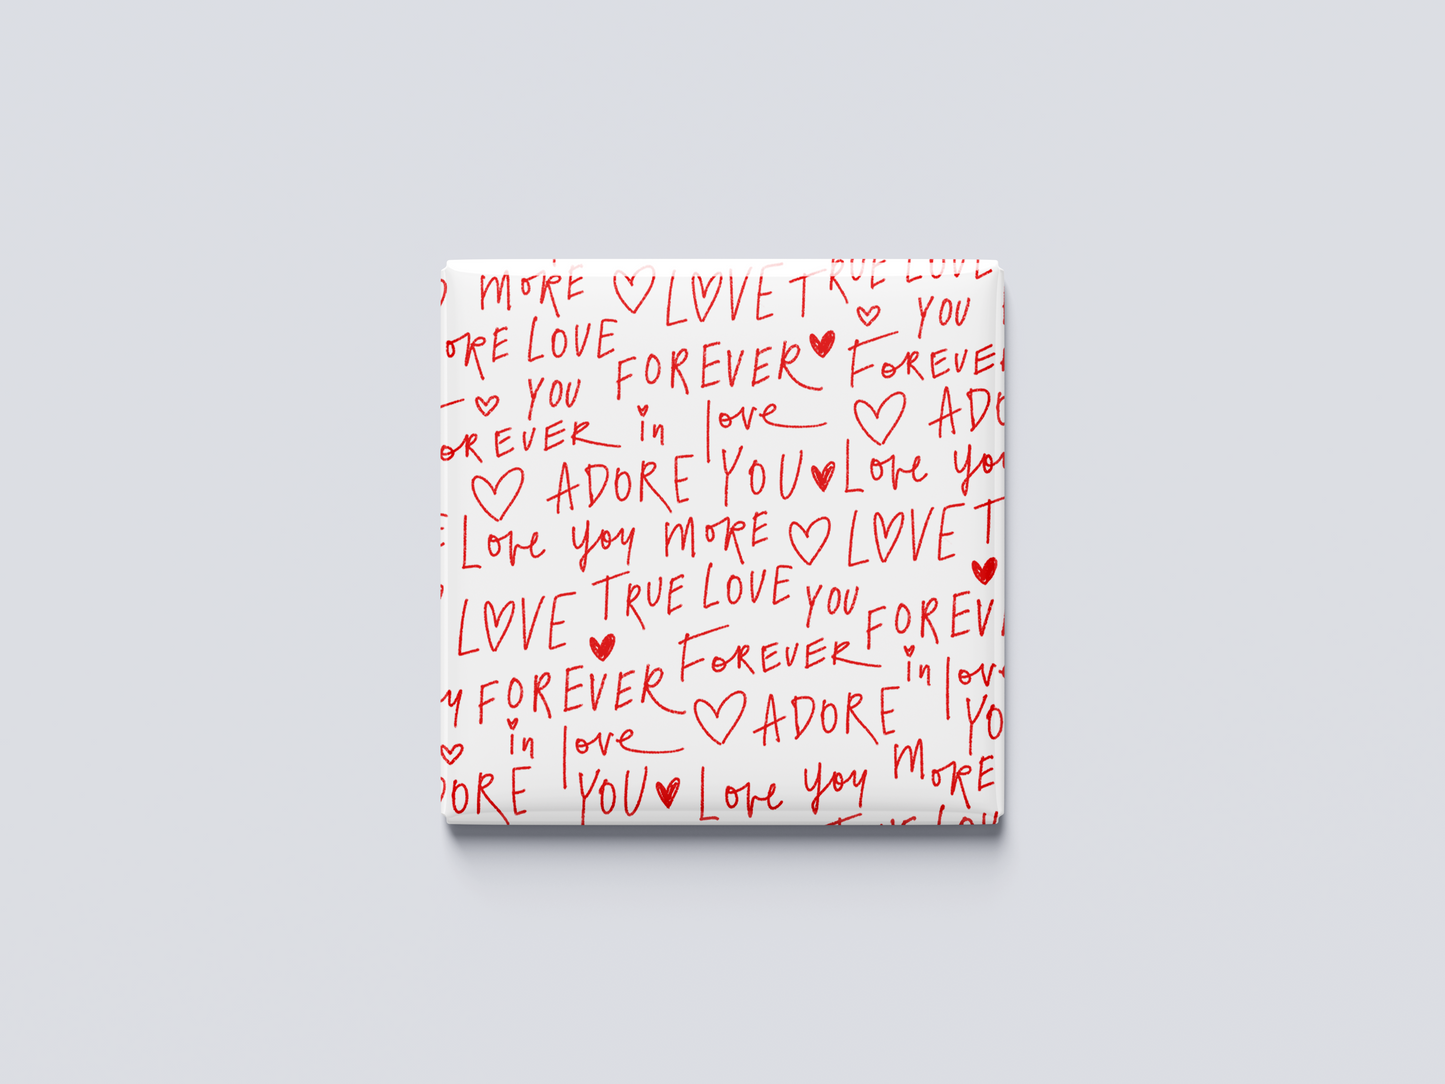 MORE LOVE TRUE LOVE
ORE LOVE YOU
FOREVER FOREVER
YOU
OREVER in love ADO
ADORE YOU Love you
Love you MORE LOVE T
LOVE TRUE LOVE YOU
FOREVER FOREV
y FOREVER in love
in love ADORE YO
DORE YOU Love you MORE
TRUE LOV